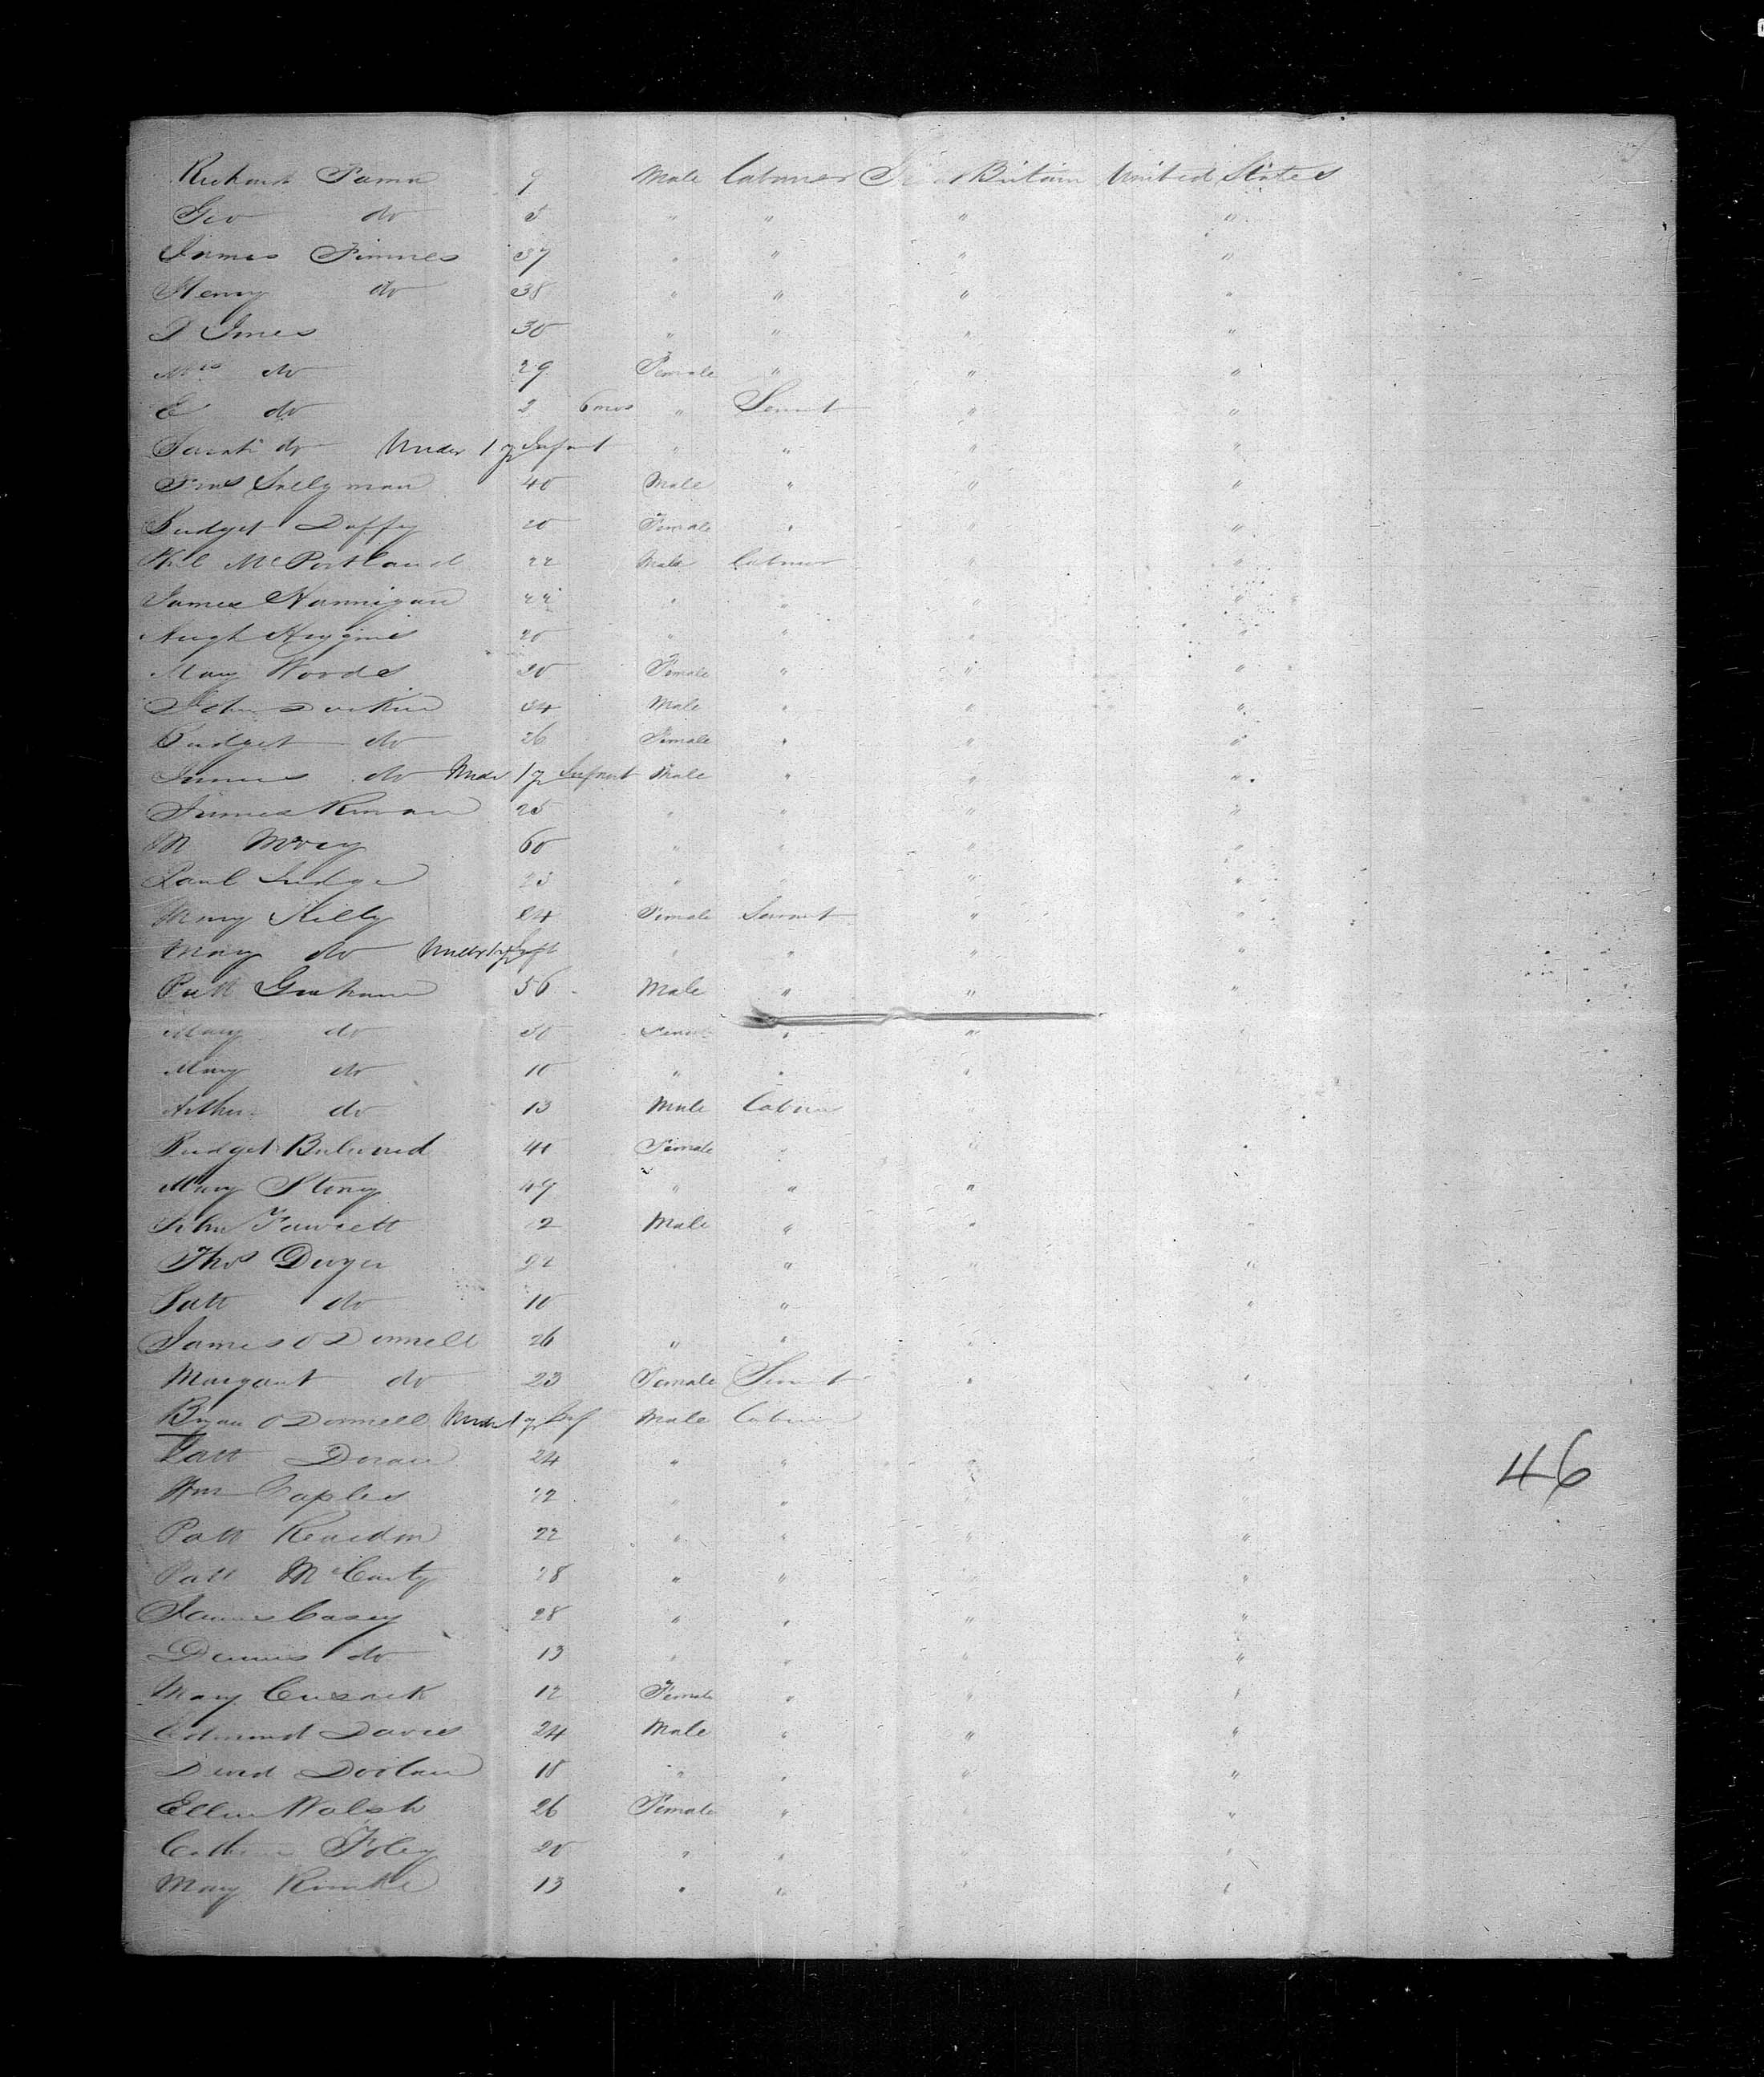 Richard 9 Male Labourer Britain United States
Geo do 5 " " " "
James 37 " " " "
Henry do 38 " " " "
30 " " " "
Mrs do 29 Female " " "
E do 2 6 mos " Servt " "
Sarah do Under 1 yr Infant " " " "
40 Male " " "
Bridget Duffy 20 Female " " "
McPortland 22 Male Labourer " "
James Hannigan 22 " " " "
Hugh Higgins 20 " " " "
Mary Woods 20 Female " " "
John Durkin 34 Male " " "
Bridget do 26 Female " " "
James do Under 1 yr Infant Male " " "
James 25 " " " "
M 60 " " " "
Paul Judge 23 " " " "
Mary Killy 24 Female Servant " "
Mary do Under 1 yr Inft " " " "
Patt Graham 56 Male " " "
Mary do 50 Female " "
Mary do 10 " " "
Arthur do 13 Male Labour "
Bridget 40 Female " " "
Mary 49 " " "
John Fawcett 2 Male " " "
Thos Dwyer 22 " " "
Patt do 10 " "
James O Donnell 26 " " "
Margaret do 23 Female Servt " "
Bryan O Donnell Under 1 yr Inf Male Labour
Patt Doran 24 " " "
Wm Caples 22 " "
Patt Reardon 22 " " " "
Patt McCarty 28 " " "
James Casey 28 " " " "
Dennis do 13 " " " "
Mary Cusack 12 Female " " "
Edmund Davies 24 Male " " "
David Doolan 18 " " " "
Ellen Walsh 26 Female " "
Foley 20 " " "
Mary 13 " " " "
46